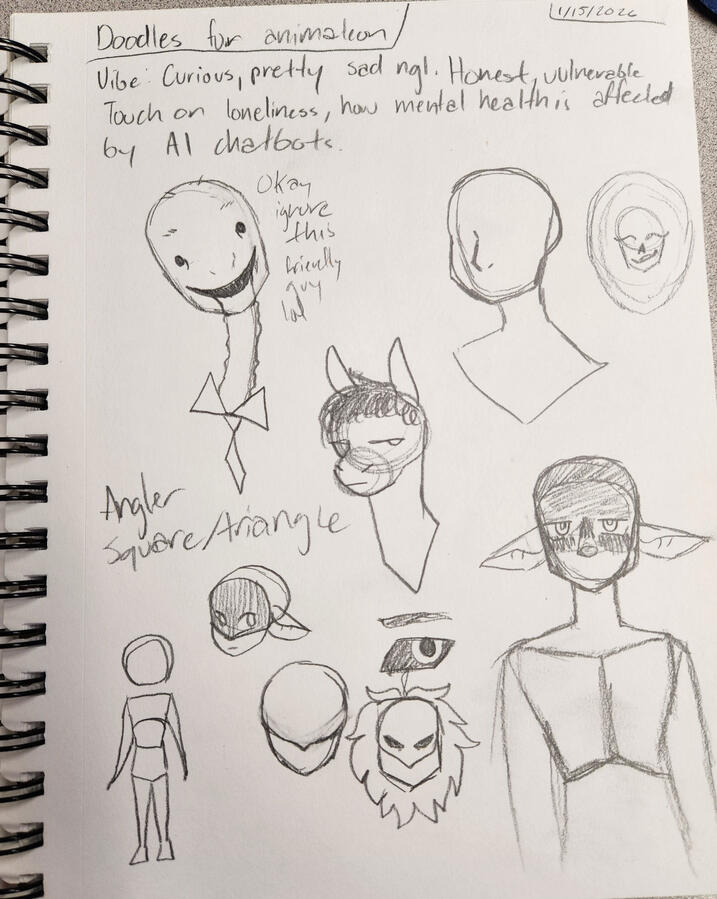 Doodles for animation
1/15/2026
Vibe: Curious, pretty sad ngl. Honest, vulnerable
Touch on loneliness, how mental health is affected
by AI chatbots.
Okay
ignore
this
friendly
guy
lol
Angler
Square/triangle